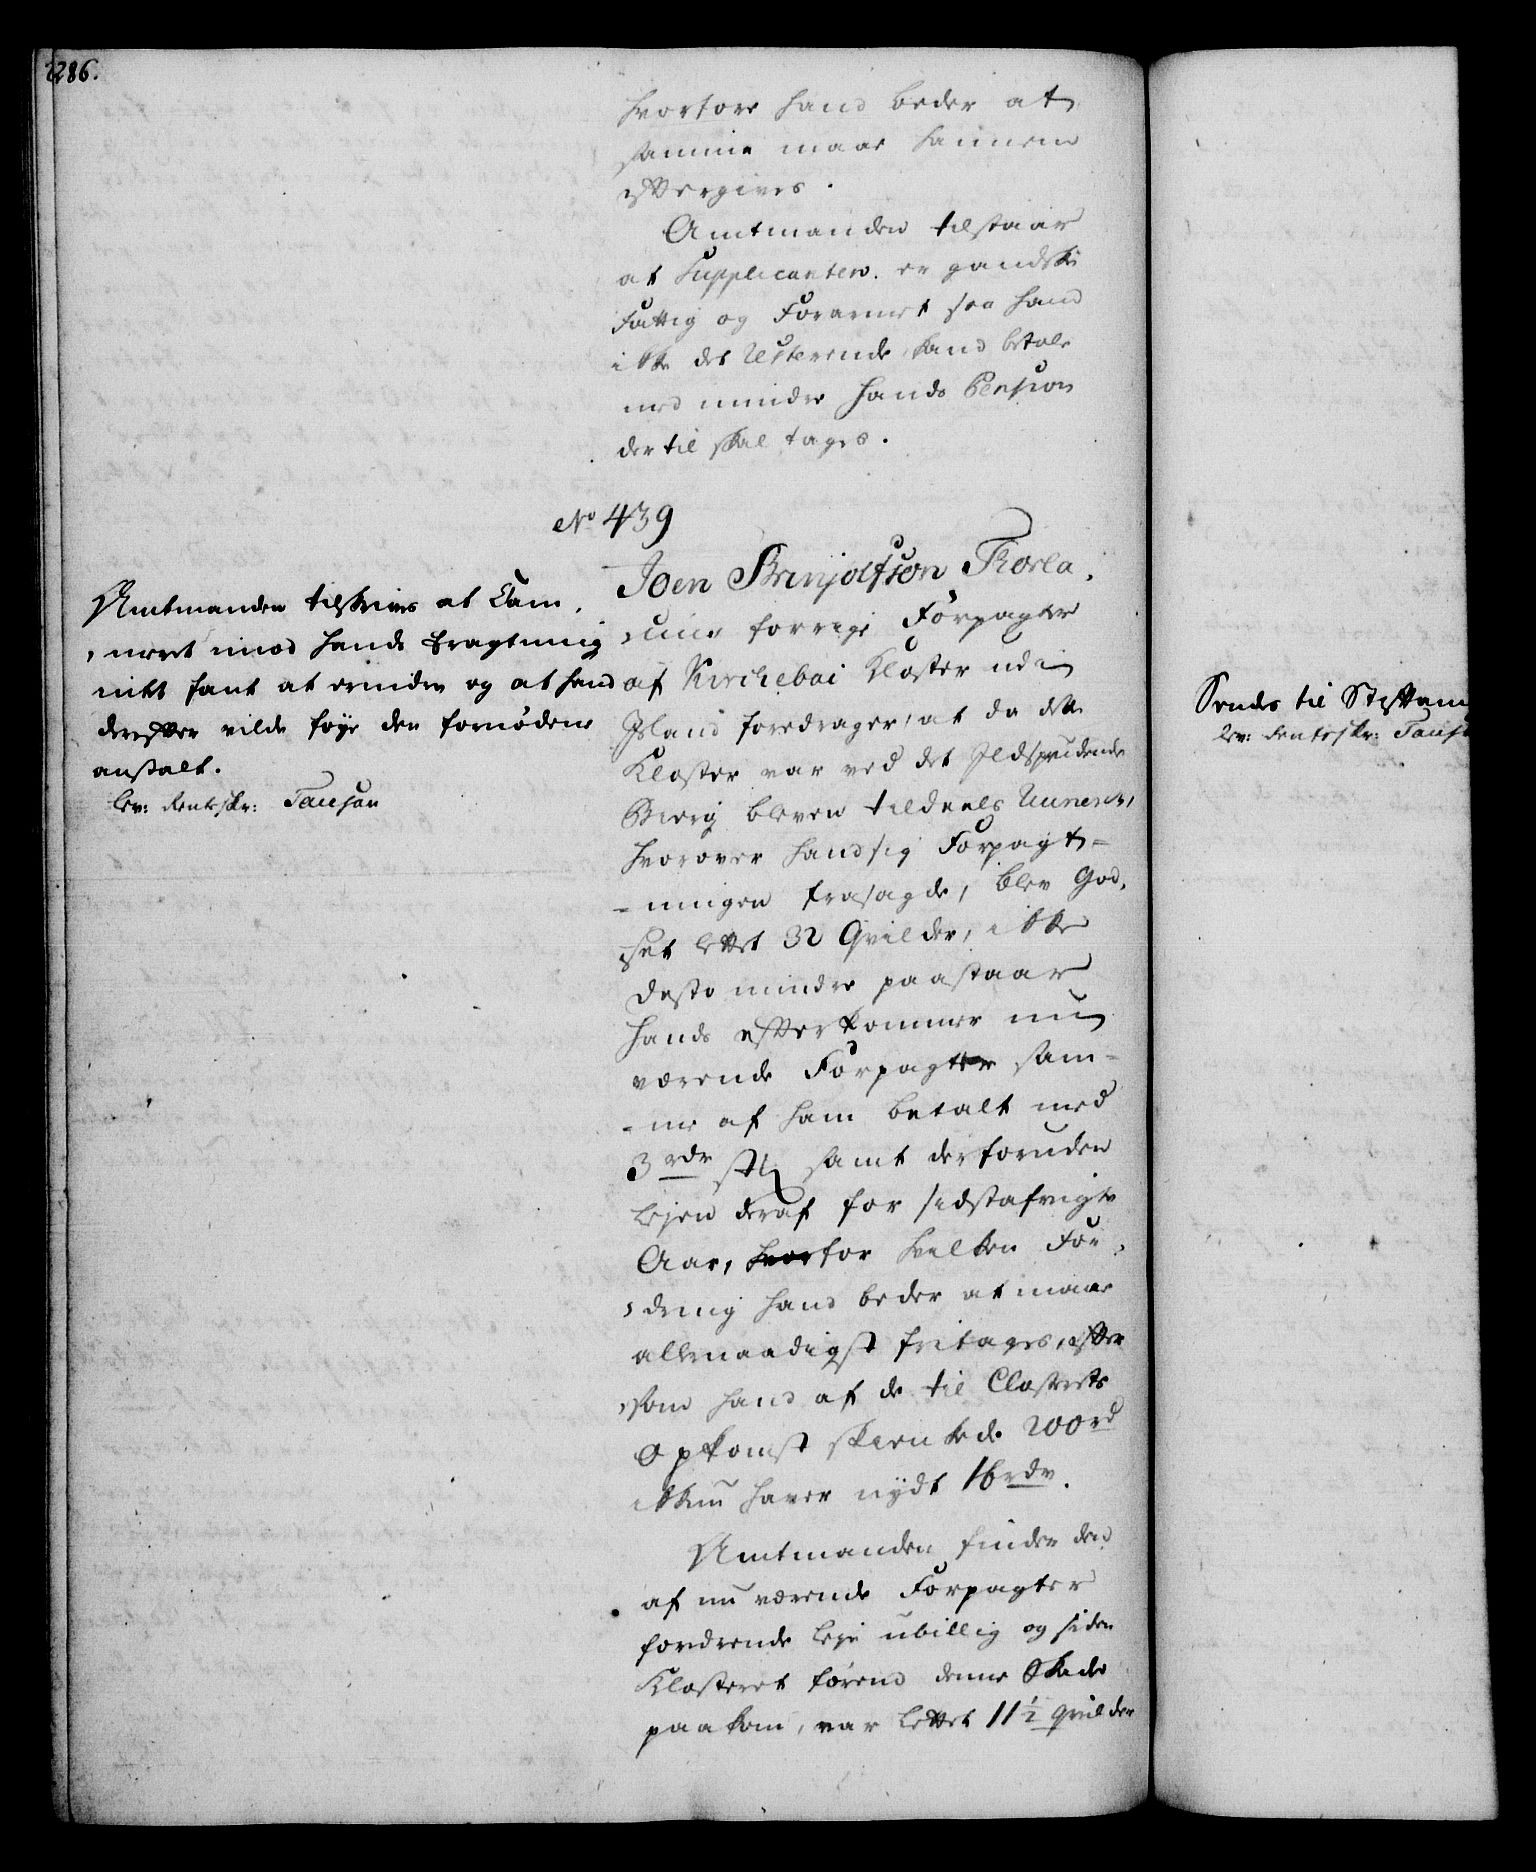 2286.
hvorfore hand beder at
samme maae hannem
eftergives.
Amtmanden tilstaar
at Supplicanten er gandske
Fattig og Forarmet saa hand
ikke det Resterende kand betale
med mindre hands Pension
der til skal tages.
No 439
Joen Brinjolfson Thorla,
forrige Forpagter
af Kirchebai Kloster udi
Island foredrager, at da dette
Kloster var ved det Ildsprudende
Bierg bleven tildeels Ruineret,
hvorover hand sig Forpagt-
-ningen frasagde, blev God,
,set lettet 32 Qvilder, ikke
desto mindre paastaar
hands efterkommer nu
værende Forpagter sam-
-me af ham betalt med
3 rdr stk samt derforuden
Lejen deraf for sidstafvigte
Aar, hvorfor hvilken For,
,dring hand beder at maae
allernaadigst fritages, efter
,som hand af de til Closterets
Opkomst skienkede 200 rd
ikkun haver nydt 16 rdr.
Amtmanden finder den
af nu værende Forpagter
fordrende Leje ubillig og siden
Klosteret førend denne Skade
paakom, var lettet 11½ qvilder
Amtmanden tilskrives at Cam,
,meret imod hands Betragtning
intet fant at erindre og at hand
derefter vilde føye den fornødene
anstalt.
lev: Renteskr: Tausan
Sendes til Stiftam
lev: Renteskr: Taus